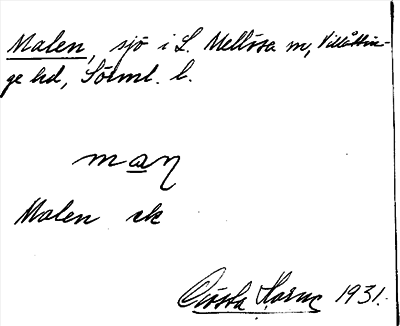 Malen, sjö i L. Mellösa sn, Villåttin-
ge hd, Sörml. l.
maŋ
Malen ek
Gösta 1931.